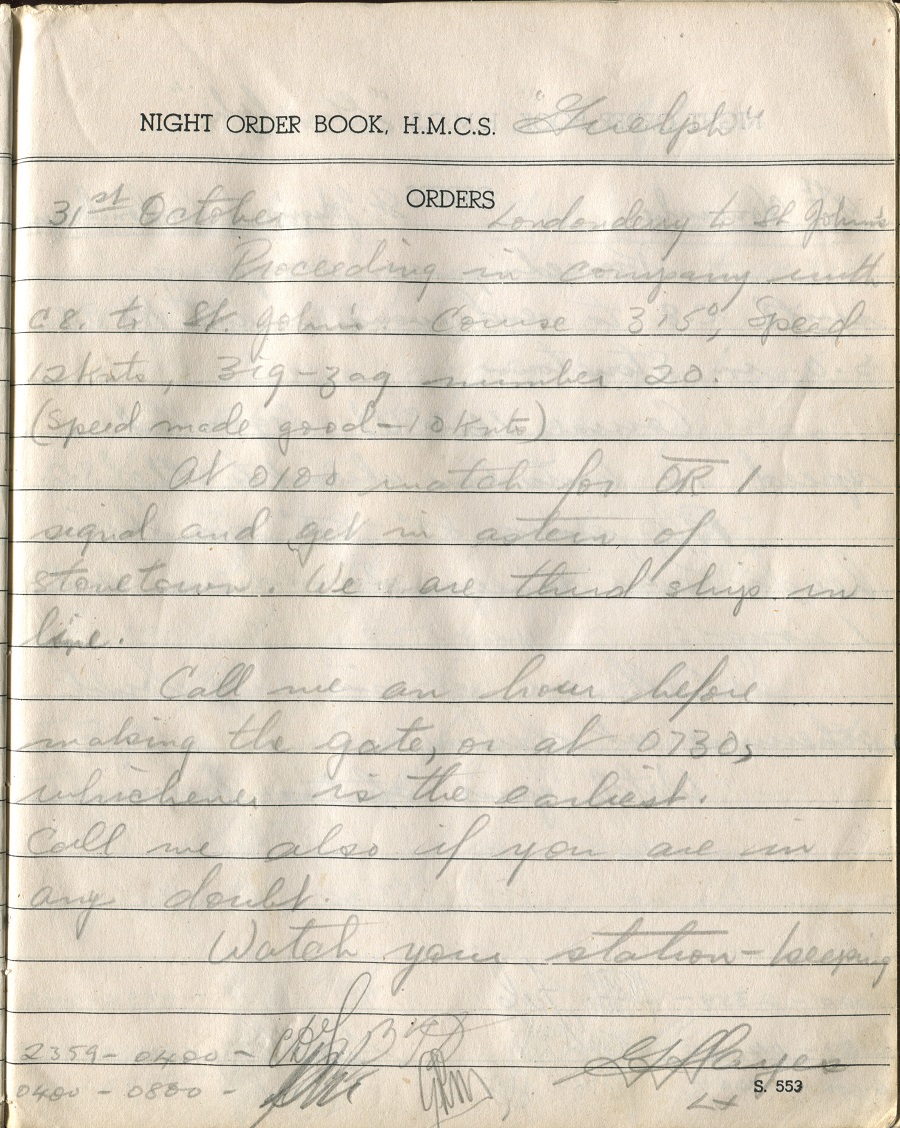 NIGHT ORDER BOOK, H.M.C.S. "Guelph"
ORDERS
31st October Londonderry to St John's
Proceeding in company with
C8. to St. John's. Course 315°, Speed
12 knts, zig-zag number 20.
(Speed made good - 10 knts)
At 0100 watch for OR 1
signal and get in astern of
Stonetown. We are third ship in
line.
Call me an hour before
making the gate, or at 0730,
whichever is the earliest.
Call me also if you are in
any doubt.
Watch your station-keeping
2359 - 0400 -
0400 - 0800 -
S. 553